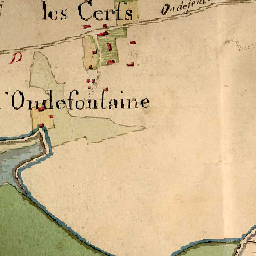 les Cerfs
Oudefont
l'Oudefontaine